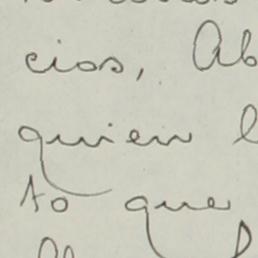 cios, Ab
quien l
to que